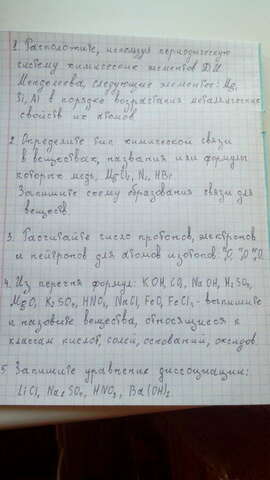 1. Расположите, используя периодическую
систему химических элементов Д.И.
Менделеева, следующие элементы: Mg,
Si, Al в порядке возрастания металлических
свойств их атомов
2. Определите тип химической связи
в веществах, названия или формулы
которых медь, MgCl₂, N₂, HBr
Запишите схему образования связи для
веществ
3. Расчитайте число протонов, электронов
и нейтронов для атомов изотопов:
4. Из перечня формул: KOH, CO₂, NaOH, H₂SO₄,
MgO, K₂SO₄, HNO₃, NaCl, FeO, FeCl₃ - выпишите
и назовите вещества, относящиеся к
классам кислот, солей, оснований, оксидов.
5 Запишите уравнение диссоциации:
LiCl, Na₂SO₄, HNO₃, Ba(OH)₂